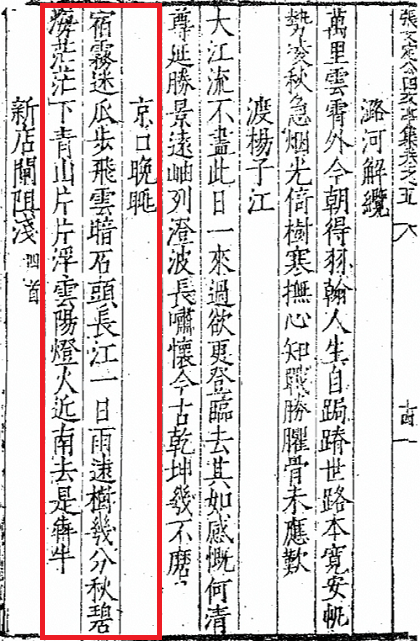 張文定公四友亭集卷之五
潞河解纜
萬里雲霄外今朝得羽翰人生自跼蹐世路本寬安帆
勢凌秋急烟光倚樹寒撫心知戰勝臞骨未應歎
渡楊子江
大江流不盡此日一來過欲更登臨去其如感慨何清
尊延勝景遠岫列澄波長嘯懷今古乾坤幾不磨
京口晚眺
宿霧迷瓜步飛雲暗石頭長江一日雨遠樹幾分秋碧
海茫茫下青山片片浮雲陽燈火近南去是犇牛
新店閘阻淺 四首